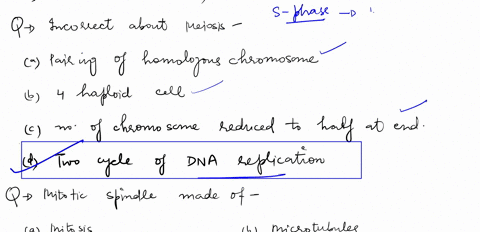 S-phase →
Q→ Incorrect about Meiosis -
(a) Pairing of homologous chromosome
(b) 4 haploid cell
(c) no. of chromosome reduced to half at end.
(d) Two cycle of DNA replication
Q→ Mitotic spindle made of -
(a) Mitosis (b) Microtubules